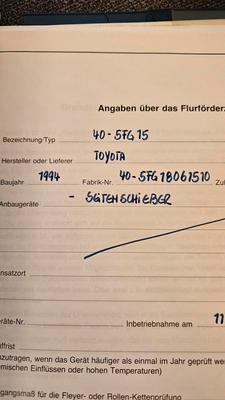 Angaben über das Flurförder
Bezeichnung/Typ 40-5FG15
Hersteller oder Lieferer TOYOTA
Baujahr 1994 Fabrik-Nr. 40-5FG18061510 Zul
Anbaugeräte - SEITENSCHIEBER
nsatzort
räte-Nr. Inbetriebnahme am 11
üffrist
nzutragen, wenn das Gerät häufiger als einmal im Jahr geprüft we
emischen Einflüssen oder hohen Temperaturen)
gangsmaß für die Fleyer- oder Rollen-Kettenprüfung